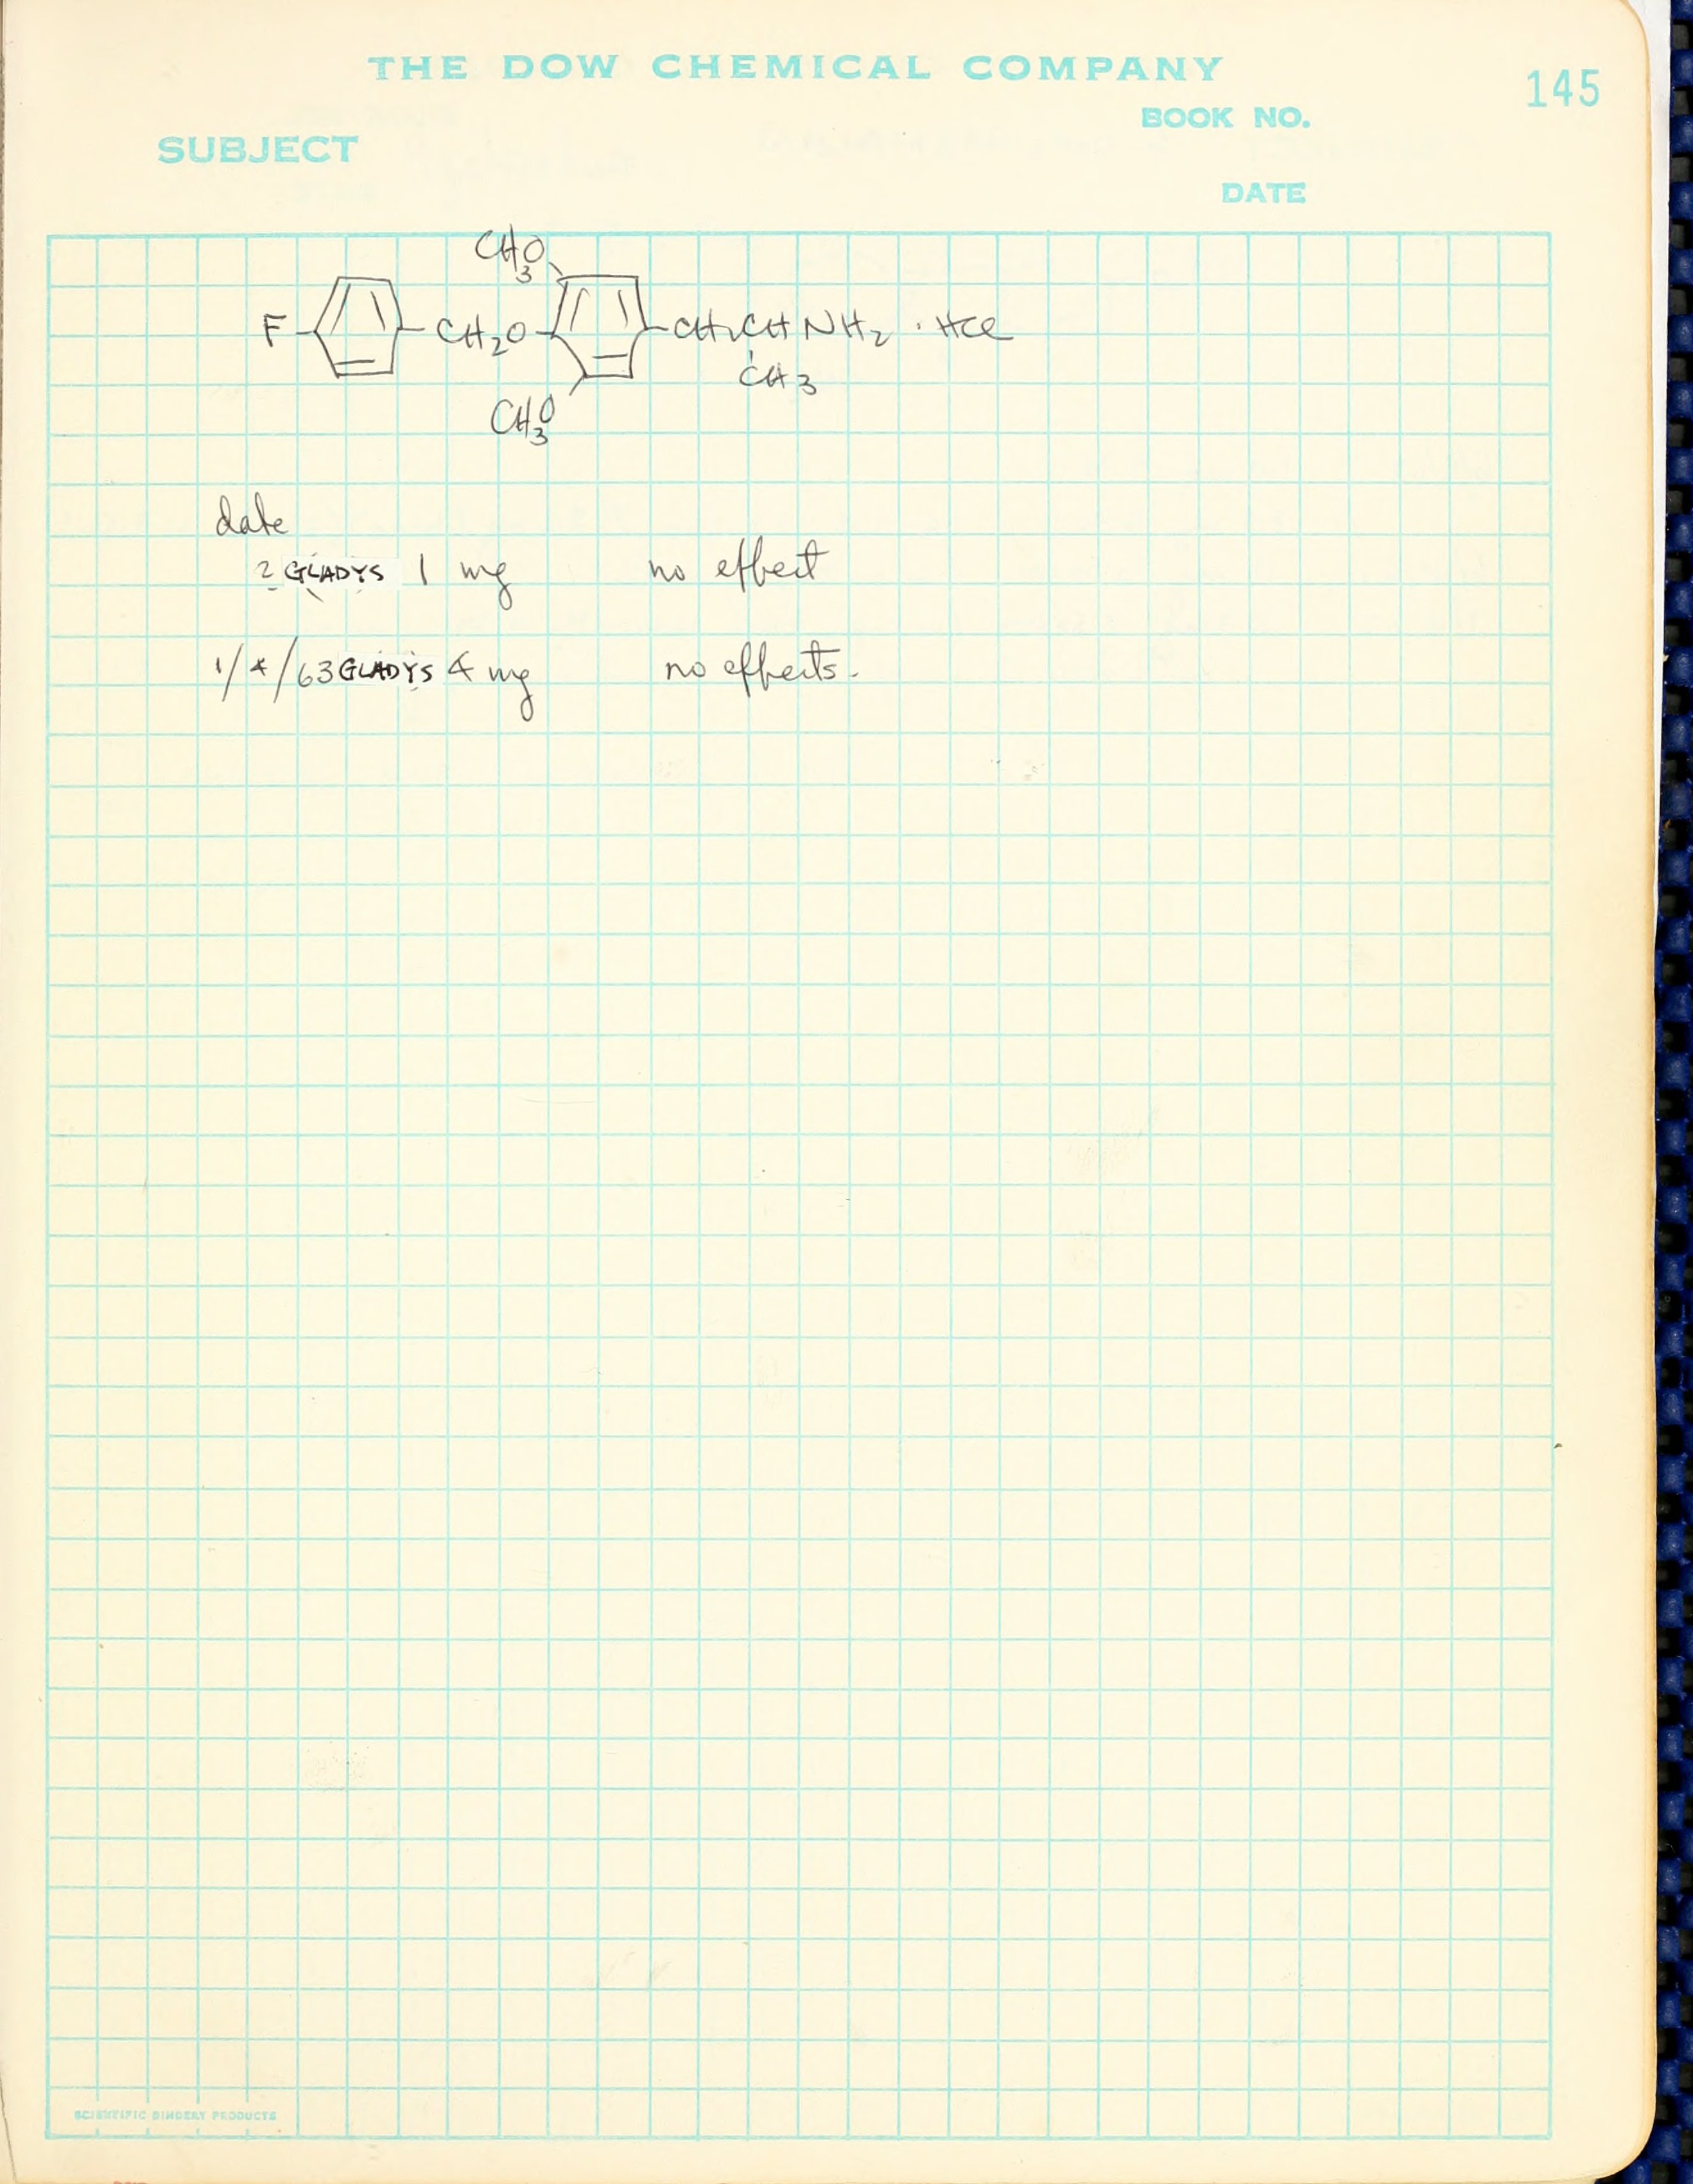 THE DOW CHEMICAL COMPANY
145
BOOK NO.
SUBJECT
DATE
CH3O
F CH2O CH2CHNH2 · HCl
CH3
CH3O
date
? GLADYS 1 mg no effect
1/4/63 GLADYS 4 mg no effects.
SCIENTIFIC BINDERY PRODUCTS